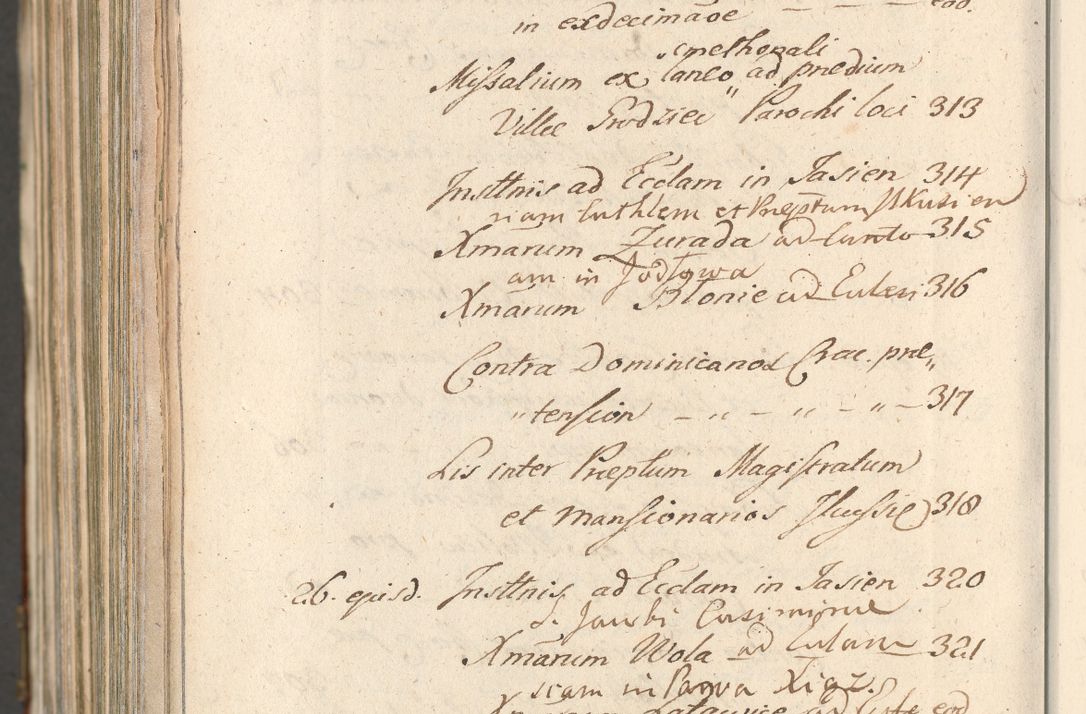 in exdecimaõe — — — eod.
cmethonali
Missalium ex laneo „ ad prædium
Villæ Grodziec Parochi loci 313
Insttnis ad Ecclam in Jasien 314
riam Cathlem et Præptum Ilkusien
Xmarum Zurada ad Canto 315
am in Jodłowa
Xmarum Blonie ad Eccles 316
Contra Dominicanos Crac. præ„
„tension — „ — „ — „ — 317
Lis inter Præptum Magistratum
et Mansionarios Ilkussie 318
26. ejusd. Insttnis ad Ecclam in Jasien 320
S. Jacobi Casimiriæ
Xmarum Wola ad Eccles 321
siam in Parva Xiąz.
ad eod